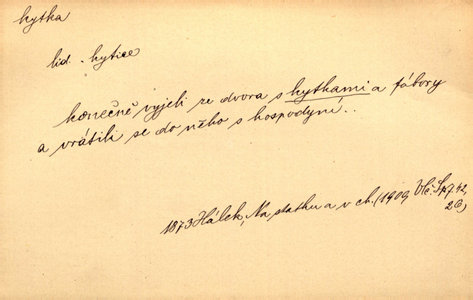 kytka
lid. kytice
konečně vyjeli ze dvora s kytkami a fábory
a vrátili se do něho s hospodyní..
1873 Hálek, Na statku a v ch. (1909,
Vlč. Sp 7.42,
26)